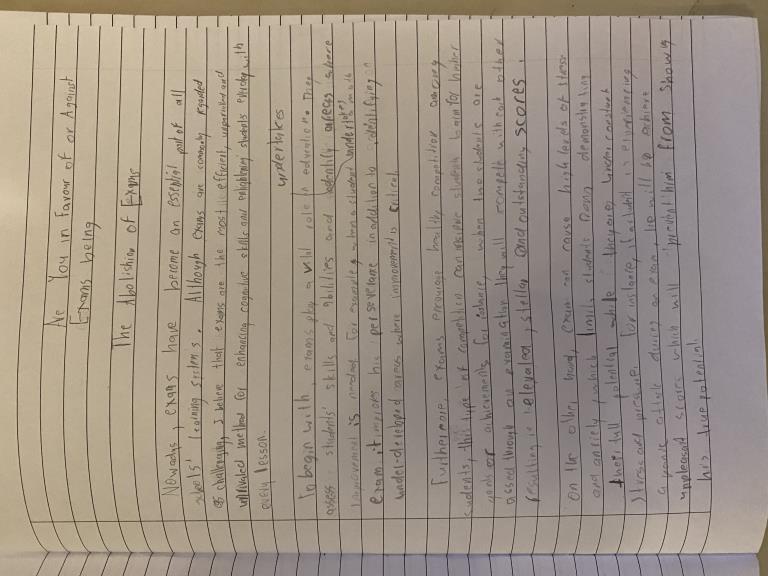 Are You in Favour of or Against
Exams being
The Abolition of Exams
Nowadays, exams have become an essential part of all
schools' learning systems. Although exams are commonly regarded
as challenging, I believe that exams are the most efficient, unparalel and
unrivaled method for enhancing cognitive skills and enlightning students entirely with
every lesson.
undertakes
To begin with, exams play a vital role in education. They
assess students' skills and abilities and identify areas where
improvement is needed. For example, when a student undertakes a math
exam, it improves his perseverance in addition to identifying
under-developed areas where improvement is critical.
Furthermore, exams encourage healthy competition among
students, this type of competition can inspire students to aim for higher
goals or achievements. For instance, when two students are
assed through an examination they will compete with each other
resulting in elevated, stellar, and outstanding scores.
On the other hand, exam can cause high levels of stress
and anxiety which limit students from demonstrating
their full potential while they are under constant
stress and pressure. For instance, if a student is experiencing
a panic attack during an exam, he will achieve
unpleasant scores which will prevent him from showing
his true potential.